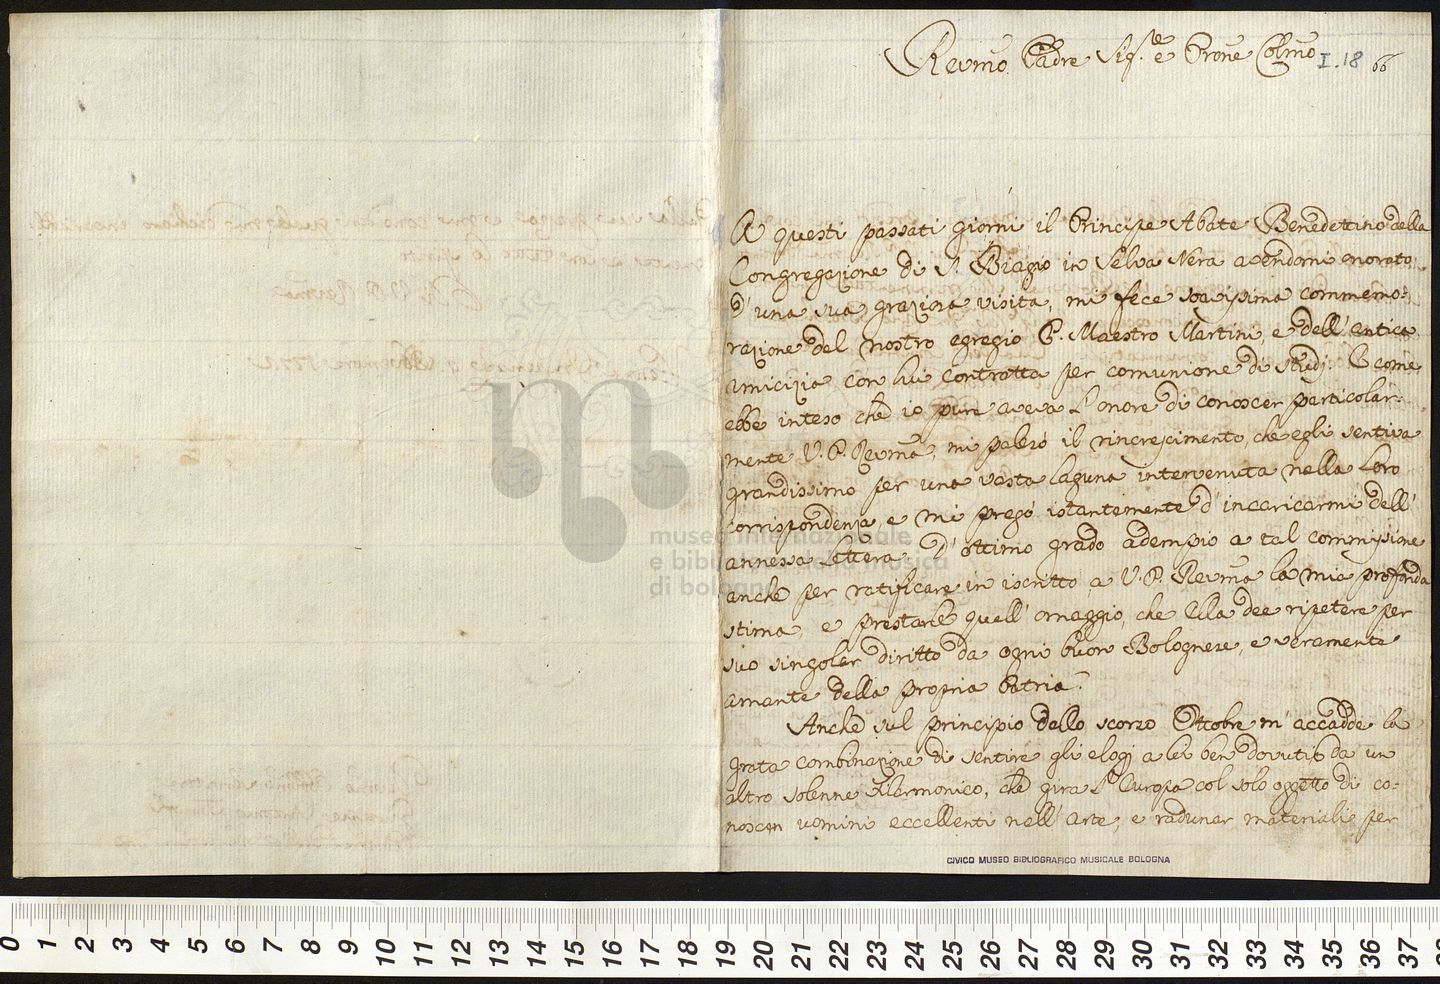 Revmo Padre Sig.re e Prone Colmo
I.18 66
A questi passati giorni il Principe Abate Benedettino della
Congregazione di S. Biagio in Selva Nera avendomi onorato
d'una sua graziosa visita, mi fece soavissima commemo:
razione del nostro egregio P. Maestro Martini, e dell'antica
amicizia con lui contratta per comunione di studj. E come
ebbe inteso che io pure aveva l'onore di conoscer particolar:
mente V. P. Revma, mi palesò il rincrescimento, che egli sentiva
grandissimo per una vasta laguna intervenuta nella loro
corrispondenza, e mi pregò istantemente d'incaricarmi dell'
annessa lettera. D'ottimo grado adempio a tal commissione
anche per ratificare in iscritto a V. P. Revma la mia profonda
stima, e prestarle quell'omaggio, che Ella dee ripetere per
suo singolar diritto da ogni buon Bolognese, e veramente
amante della propria Patria.
Anche sul principio dello scorso Ottobre m'accadde la
grata combinazione di sentire gli elogj a lei ben dovuti da un
altro solenne Filarmonico, che gira l'Europa col solo oggetto di co:
noscere uomini eccellenti nell'arte, e radunar materiali per
CIVICO MUSEO BIBLIOGRAFICO MUSICALE BOLOGNA
museo internazionale
e biblioteca della musica
di bologna
0 1 2 3 4 5 6 7 8 9 10 11 12 13 14 15 16 17 18 19 20 21 22 23 24 25 26 27 28 29 30 31 32 33 34 35 36 37 38